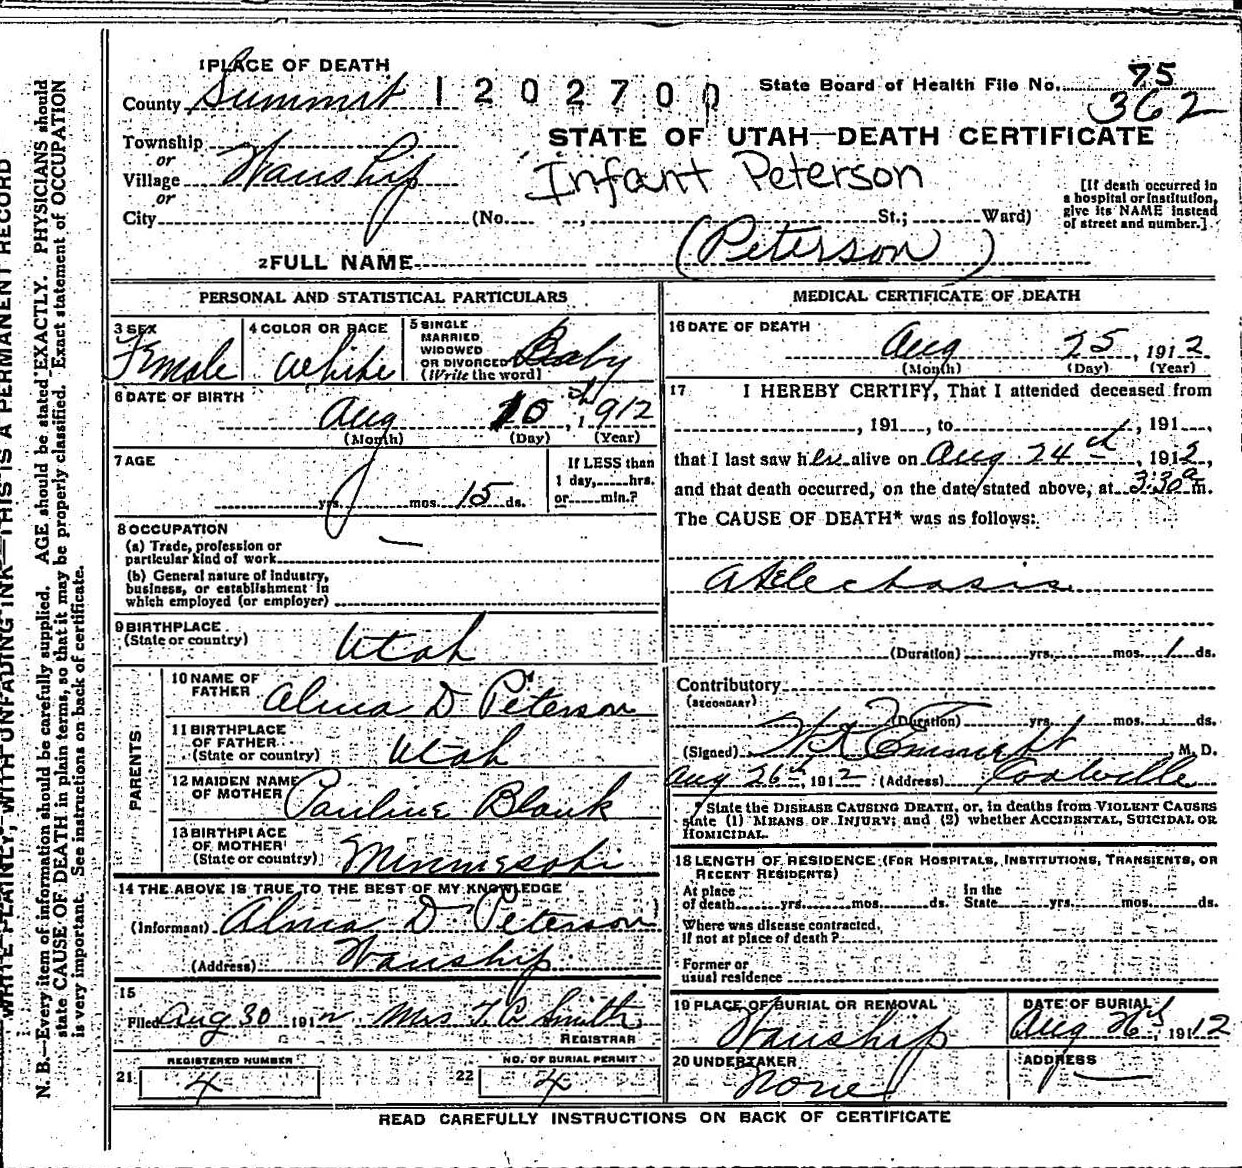 1 PLACE OF DEATH
County Summit
1202700
State Board of Health File No. 75
362
Township
or
Village Wanship
or
City (No. St.; Ward)
STATE OF UTAH—DEATH CERTIFICATE
Infant Peterson
[If death occurred in a hospital or institution, give its NAME instead of street and number.]
2 FULL NAME (Peterson)
PERSONAL AND STATISTICAL PARTICULARS
3 SEX Female
4 COLOR OR RACE White
5 SINGLE MARRIED WIDOWED OR DIVORCED (Write the word) Baby
6 DATE OF BIRTH
Aug 10th, 1912
(Month) (Day) (Year)
7 AGE
yrs. mos. 15 ds.
If LESS than 1 day, hrs. or min.?
8 OCCUPATION —
(a) Trade, profession or particular kind of work
(b) General nature of industry, business, or establishment in which employed (or employer)
9 BIRTHPLACE (State or country) Utah
PARENTS
10 NAME OF FATHER Alma D Peterson
11 BIRTHPLACE OF FATHER (State or country) Utah
12 MAIDEN NAME OF MOTHER Pauline Blonk
13 BIRTHPLACE OF MOTHER (State or country)
14 THE ABOVE IS TRUE TO THE BEST OF MY KNOWLEDGE
(Informant) Alma D Peterson
(Address) Wanship
15
Filed Aug 30 191 2 Mrs T. C. Smith
REGISTRAR
REGISTERED NUMBER
21 4
NO. OF BURIAL PERMIT
22 4
MEDICAL CERTIFICATE OF DEATH
16 DATE OF DEATH
Aug 25, 1912
(Month) (Day) (Year)
17 I HEREBY CERTIFY, That I attended deceased from
, 191 , to , 191 ,
that I last saw her alive on Aug 24th, 1912,
and that death occurred, on the date stated above, at 3:30 a m.
The CAUSE OF DEATH* was as follows:
Atelechasis
(Duration) yrs. mos. 1 ds.
Contributory
(SECONDARY)
(Duration) yrs. mos. ds.
(Signed) , M. D.
Aug 26th, 1912 (Address) Coalville
* State the DISEASE CAUSING DEATH, or, in deaths from VIOLENT CAUSES state (1) MEANS OF INJURY; and (2) whether ACCIDENTAL, SUICIDAL OR HOMICIDAL.
18 LENGTH OF RESIDENCE (FOR HOSPITALS, INSTITUTIONS, TRANSIENTS, OR RECENT RESIDENTS)
At place of death yrs. mos. ds. In the State yrs. mos. ds.
Where was disease contracted, if not at place of death?
Former or usual residence
19 PLACE OF BURIAL OR REMOVAL Wanship
DATE OF BURIAL Aug 26th, 1912
20 UNDERTAKER None
ADDRESS —
READ CAREFULLY INSTRUCTIONS ON BACK OF CERTIFICATE
WRITE PLAINLY, WITH UNFADING INK—THIS IS A PERMANENT RECORD
N. B.—Every item of information should be carefully supplied. AGE should be stated EXACTLY. PHYSICIANS should
state CAUSE OF DEATH in plain terms, so that it may be properly classified. Exact statement of OCCUPATION
is very important. See instructions on back of certificate.